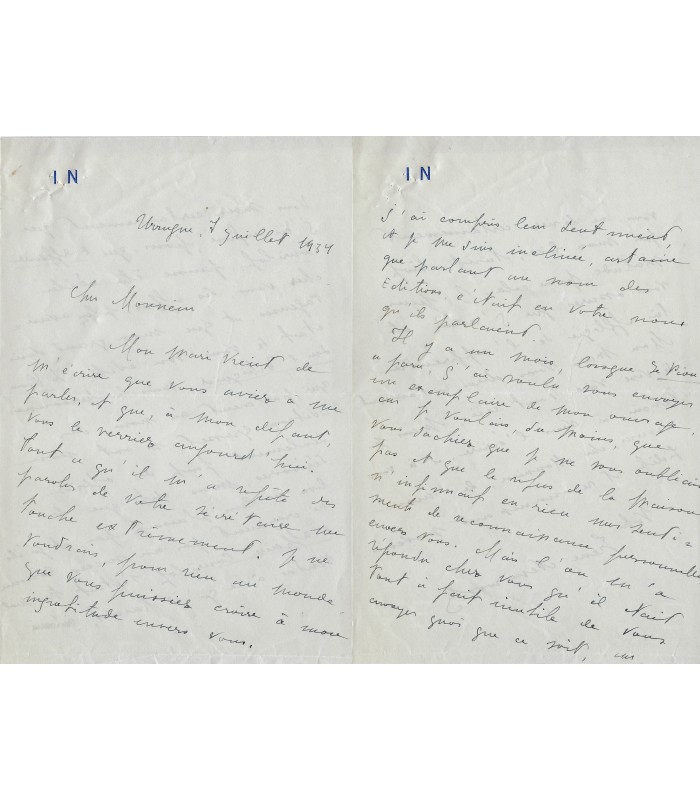 I N
Urrugne, 7 juillet 1934
Cher Monsieur
Mon mari vient de
m'écrire que vous aviez à me
parler, et que, à mon défaut,
vous le verriez aujourd'hui.
Tout ce qu'il m'a répété des
paroles de votre secrétaire me
touche extrêmement. Je ne
voudrais, pour rien au monde,
que vous puissiez croire à mon
ingratitude envers vous.
I N
J'ai compris leur sentiment,
et je me suis inclinée, certaine
que parlant au nom des
Editions c'était en votre nom
qu'ils parlaient.
Il y a un mois, lorsque le Pion
a paru, j'ai voulu vous envoyer
un exemplaire de mon ouvrage,
car je voulais, du moins, que
vous sachiez que je ne vous oubliais
pas et que le refus de la maison
n'infirmait en rien mes senti-
ments de reconnaissance personnelle
envers vous. Mais l'on m'a
répondu chez vous qu'il était
tout à fait inutile de vous
envoyer quoi que ce soit, car